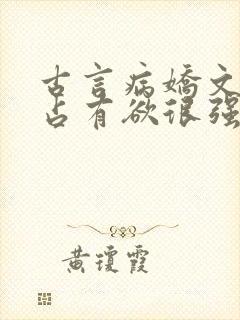 古言病嬌文
占有欲很强
黄瓊霞